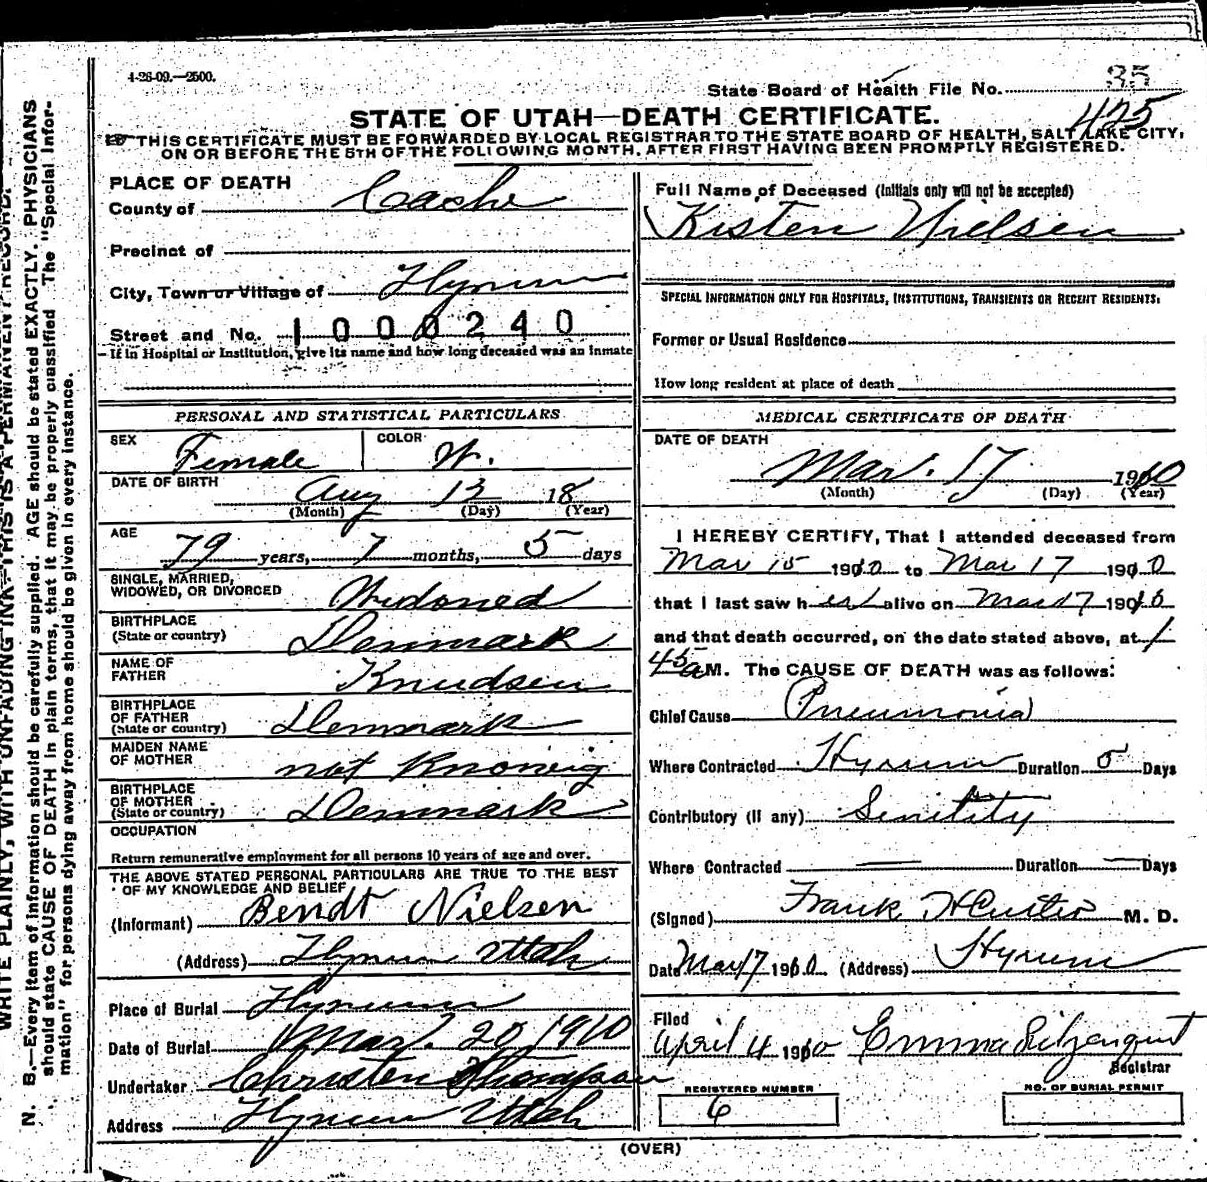 4-26-09.—2500.
State Board of Health File No. 35
425
STATE OF UTAH—DEATH CERTIFICATE.
THIS CERTIFICATE MUST BE FORWARDED BY LOCAL REGISTRAR TO THE STATE BOARD OF HEALTH, SALT LAKE CITY,
ON OR BEFORE THE 5TH OF THE FOLLOWING MONTH, AFTER FIRST HAVING BEEN PROMPTLY REGISTERED.
PLACE OF DEATH
County of Cache
Precinct of
City, Town or Village of Hyrum
Street and No. 1000240
If in Hospital or Institution, give its name and how long deceased was an inmate
PERSONAL AND STATISTICAL PARTICULARS
SEX Female COLOR W.
DATE OF BIRTH Aug 13 18
(Month) (Day) (Year)
AGE 79 years, 7 months, 5 days
SINGLE, MARRIED,
WIDOWED, OR DIVORCED Widoned
BIRTHPLACE
(State or country) Denmark
NAME OF
FATHER Knudsen
BIRTHPLACE
OF FATHER
(State or country) Denmark
MAIDEN NAME
OF MOTHER not Knowig
BIRTHPLACE
OF MOTHER
(State or country) Denmark
OCCUPATION
Return remunerative employment for all persons 10 years of age and over.
THE ABOVE STATED PERSONAL PARTICULARS ARE TRUE TO THE BEST
OF MY KNOWLEDGE AND BELIEF
(Informant) Bendt Nielsen
(Address) Hyrum Utah
Place of Burial Hyrum
Date of Burial Mar. 20 1910
Undertaker Christen Thompson
Address Hyrum Utah
Full Name of Deceased (Initials only will not be accepted)
Kisten Nielsen
SPECIAL INFORMATION ONLY FOR HOSPITALS, INSTITUTIONS, TRANSIENTS OR RECENT RESIDENTS.
Former or Usual Residence
How long resident at place of death
MEDICAL CERTIFICATE OF DEATH
DATE OF DEATH
Mar. 17 1910
(Month) (Day) (Year)
I HEREBY CERTIFY, That I attended deceased from
Mar 15 1910 to Mar 17 1910
that I last saw her alive on Mar 17 1910
and that death occurred, on the date stated above, at 1
45 a M. The CAUSE OF DEATH was as follows:
Chief Cause Pneumonia
Where Contracted Hyrum Duration 5 Days
Contributory (If any) Senility
Where Contracted Duration Days
(Signed) Frank H M. D.
Date Mar 17 1910 (Address) Hyrum
Filed
April 4 1910 Emma
Registrar
REGISTERED NUMBER
6
NO. OF BURIAL PERMIT
(OVER)
WRITE PLAINLY, WITH UNFADING INK—THIS IS A PERMANENT RECORD.
N. B.—Every item of information should be carefully supplied. AGE should be stated EXACTLY. PHYSICIANS
should state CAUSE OF DEATH in plain terms, that it may be properly classified. The "Special Infor-
mation" for persons dying away from home should be given in every instance.